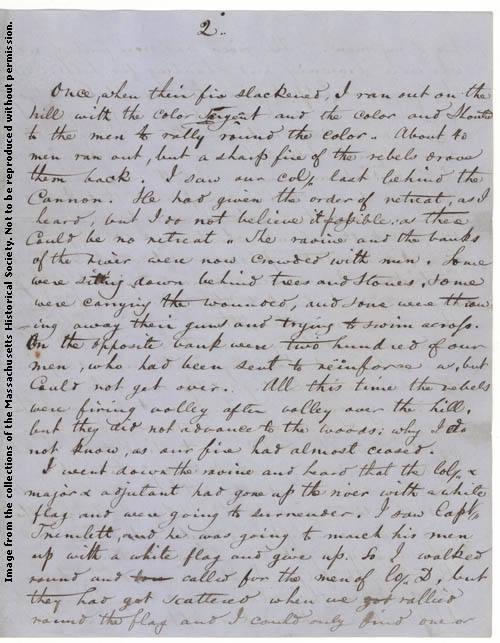 2.
Once, when their fire slackened, I ran out on the
hill with the color Sergent and the color and Shouted
to the men to rally round the color. About 40
men ran out, but a sharp fire of the rebels drove
them back. I saw our col. last behind the
Cannon. He had given the order of retreat, as I
heard, but I do not believe it possible, as there
Could be no retreat. The ravine and the banks
of the river were now crowded with men. Some
were sitting down behind trees and Stones, some
were carrying the wounded, and some were throw
-ing away their guns and trying to swim across.
On the opposit bank were two hundred of our
men, who had been sent to reïnforce us, but
Could not get over. All this time the rebels
were firing volley after volley over the hill,
but they did not advance to the woods; why I do
not know, as our fire had almost ceased.
I went down the ravine and heard that the Col. &
major & adjutant had gone up the river with a white
flag and were going to surrender. I saw Capt.
Tremlett, and he was going to march his men
up with a white flag and give up. So I walked
round and called for the men of Co. D, but
they had got scattered when we got rallied
round the flag and I could only find one or
Image from the collections of the Massachusetts Historical Society. Not to be reproduced without permission.